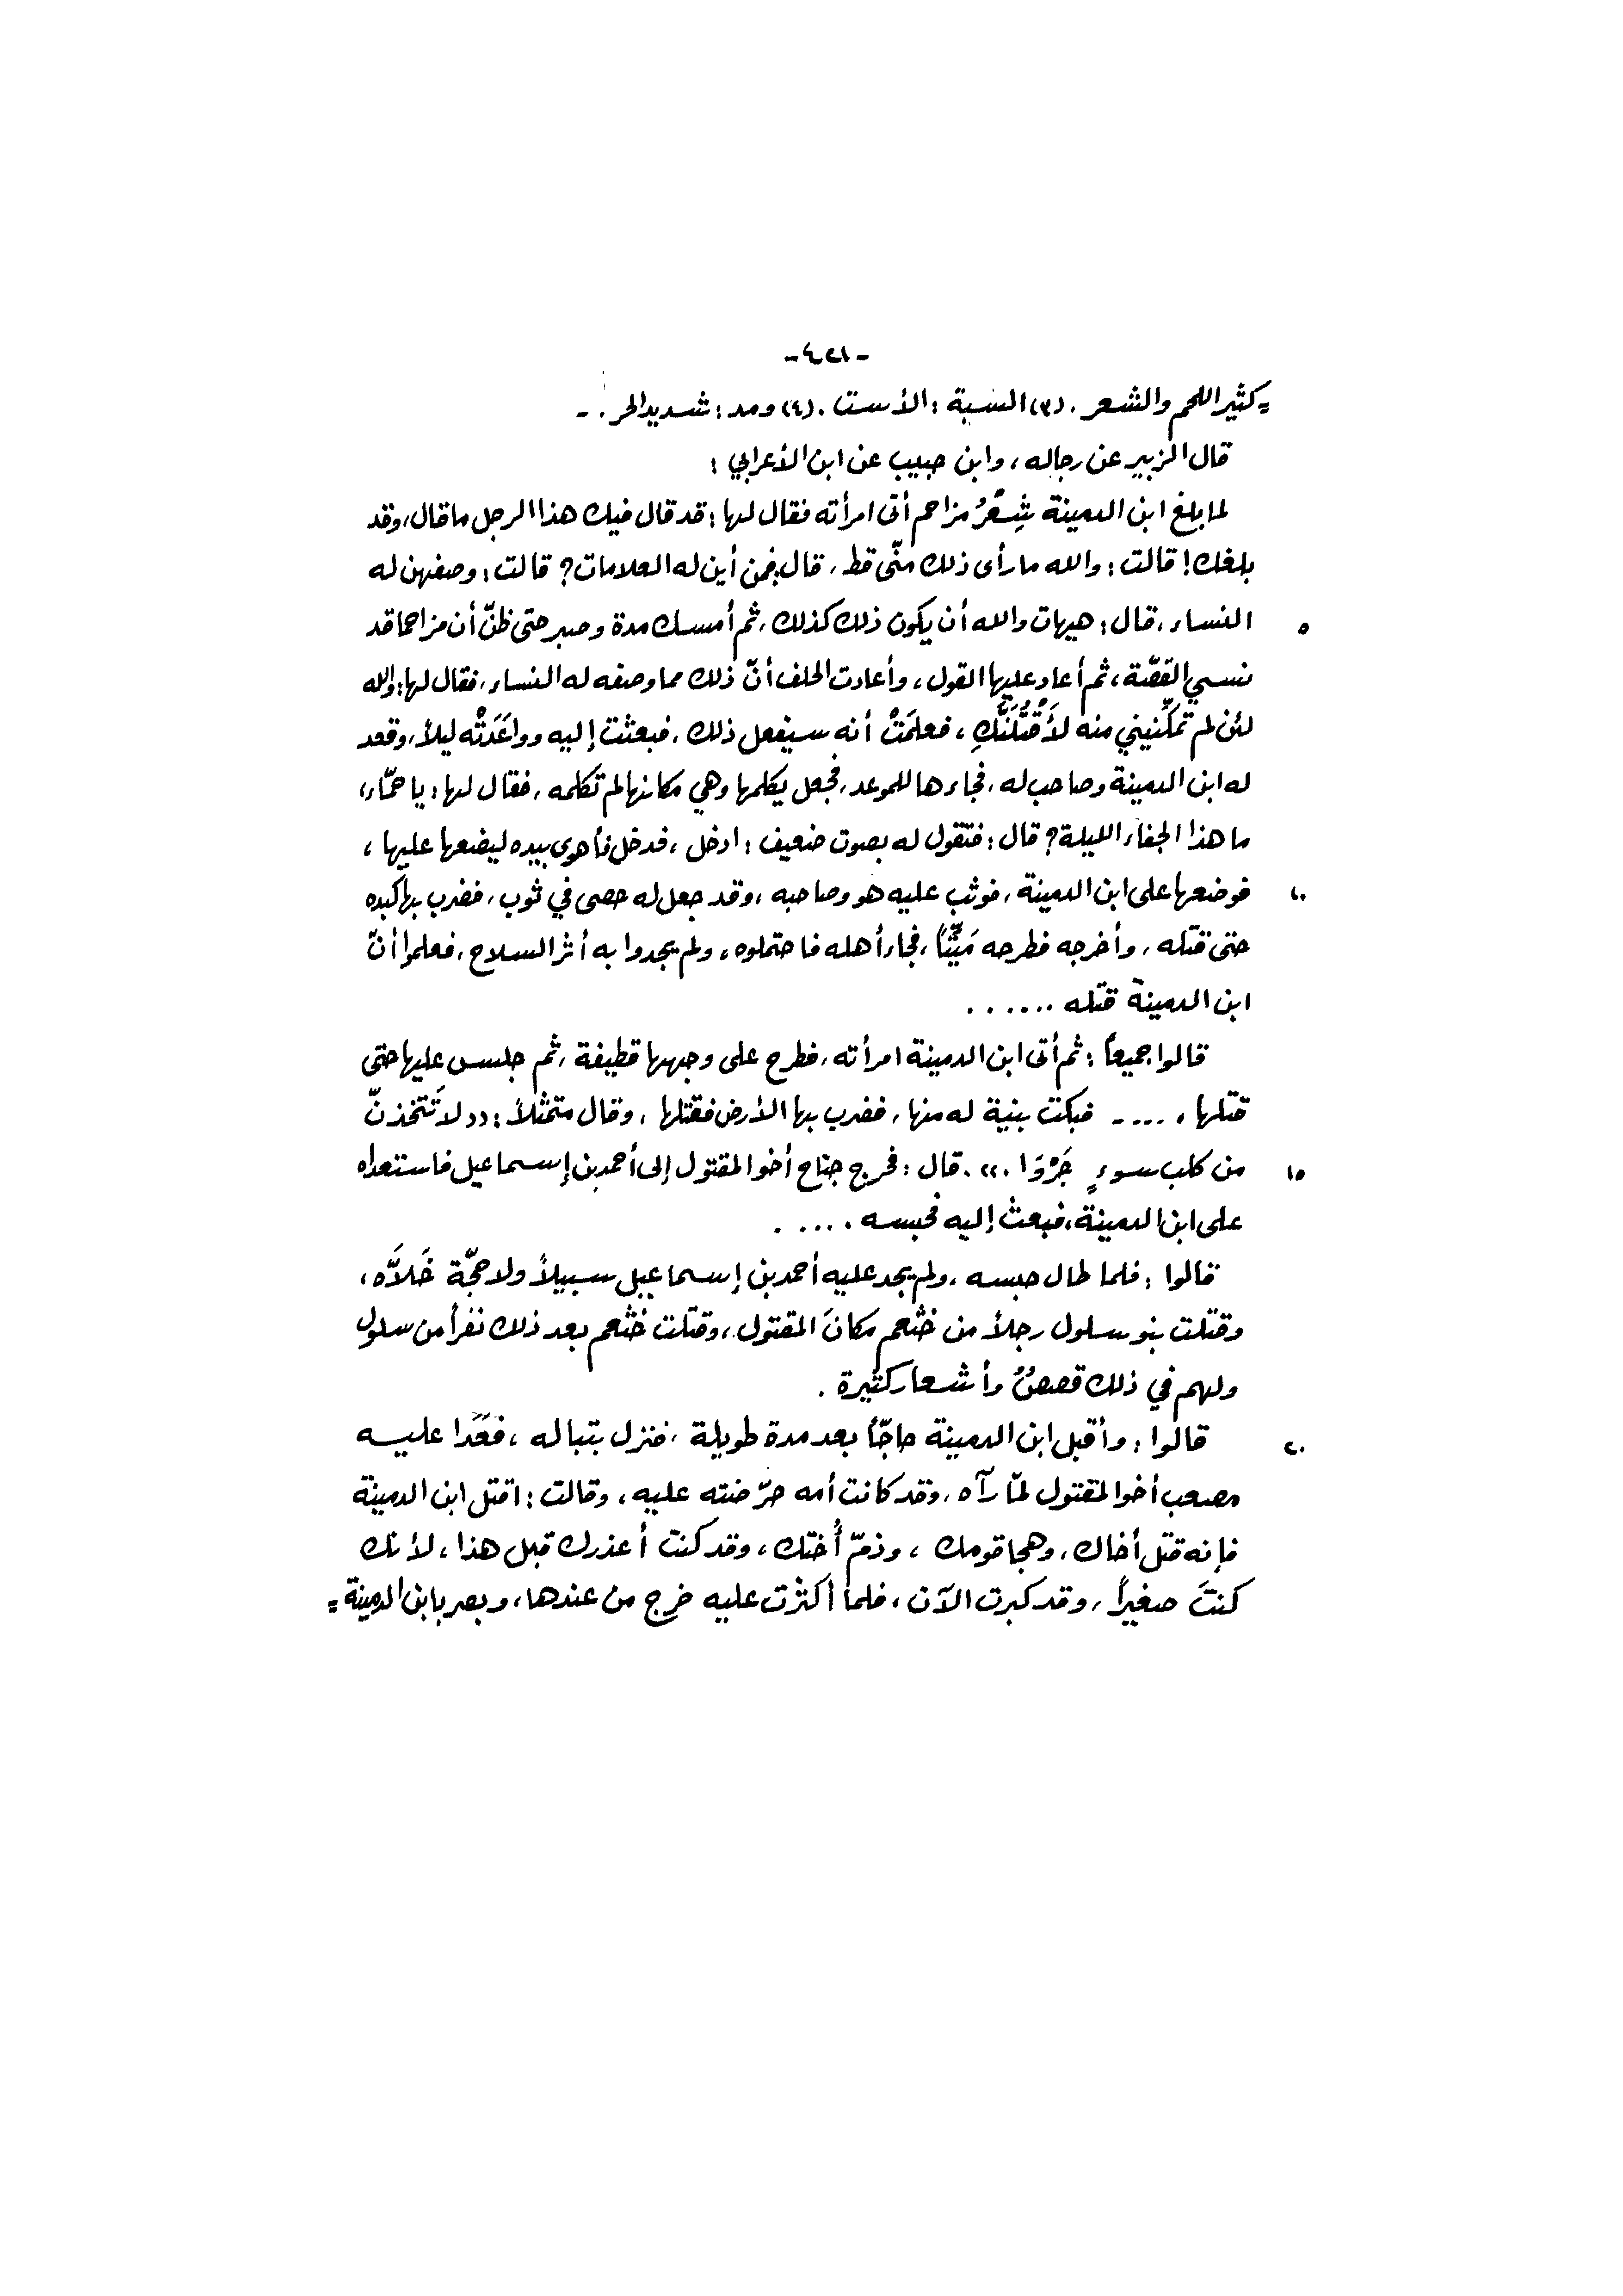 -٤٢١-
= كثير اللحم والشعر . (٣) السبة : الأست . (٤) ومد : شديد الحر . -
قال الزبير عن رجاله ، وابن حبيب عن ابن الأعرابي :
لما بلغ ابن الدمينة شِعْرُ مزاحم أتى امرأته فقال لها : قد قال فيك هذا الرجل ما قال ، وقد
بلغك ! قالت : والله ما رأى ذلك منّي قط ، قال : فمن أين له العلامات ؟ قالت : وصفهن له
٥ النساء ، قال : هيهات والله أن يكون ذلك كذلك ، ثم أمسك مدة وصبر حتى ظنّ أن مزاحما قد
نسي القصّة ، ثم أعاد عليها القول ، وأعادت الحلف أنّ ذلك مما وصفه له النساء ، فقال لها : والله
لئن لم تمكّنيني منه لأَقْتُلَنَّكِ ، فعلمَتْ أنه سيفعل ذلك ، فبعثت إليه وواعَدَتْه ليلاً ، وقعد
له ابن الدمينة وصاحب له ، فجاءها للموعد ، فجعل يكلمها وهي مكانها لم تكلمه ، فقال لها : يا حمّاء ،
ما هذا الجفاء الليلة ؟ قال : فتقول له بصوت ضعيف : ادخل ، فدخل فأهوى بيده ليضعها عليها ،
١٠ فوضعها على ابن الدمينة ، فوثب عليه هو وصاحبه ، وقد جعل له حصى في ثوب ، فضرب بها كبده
حتى قتله ، وأخرجه فطرحه مَيِّتًا ، فجاء أهله فاحتملوه ، ولم يجدوا به أثر السلاح ، فعلموا أنّ
ابن الدمينة قتله ......
قالوا جميعاً : ثم أتى ابن الدمينة امرأته ، فطرح على وجهها قطيفة ، ثم جلس عليها حتى
قتلها ، .... فبكت بنية له منها ، فضرب بها الأرض فقتلها ، وقال متمثلاً : (( لا تَتخذنّ
١٥ من كلب سوءٍ جَرْوَا . )) . قال : فخرج جناح أخو المقتول إلى أحمد بن إسماعيل فاستعداه
على ابن الدمينة ، فبعث إليه فحبسه .....
قالوا : فلما طال حبسه ، ولم يجد عليه أحمد بن إسماعيل سبيلاً ولا حجّة خَلاَّه ،
وقتلت بنو سلول رجلاً من خثعم مكانَ المقتول ، وقتلت خثعم بعد ذلك نفراً من سلول
ولهم في ذلك قصصٌ وأشعار كثيرة .
٢٠ قالوا : وأقبل ابن الدمينة حاجّاً بعد مدة طويلة ، فنزل بتباله ، فعَدَا عليه
مصعب أخو المقتول لمّا رآه ، وقد كانت أمه حرّضته عليه ، وقالت : اقتل ابن الدمينة
فإنه قتل أخاك ، وهجا قومك ، وذمّ أُختك ، وقد كنت أعذرك قبل هذا ، لأنك
كنتَ صغيراً ، وقد كبرت الآن ، فلما أكثرت عليه خرج من عندها ، وبصر بابن الدمينة =